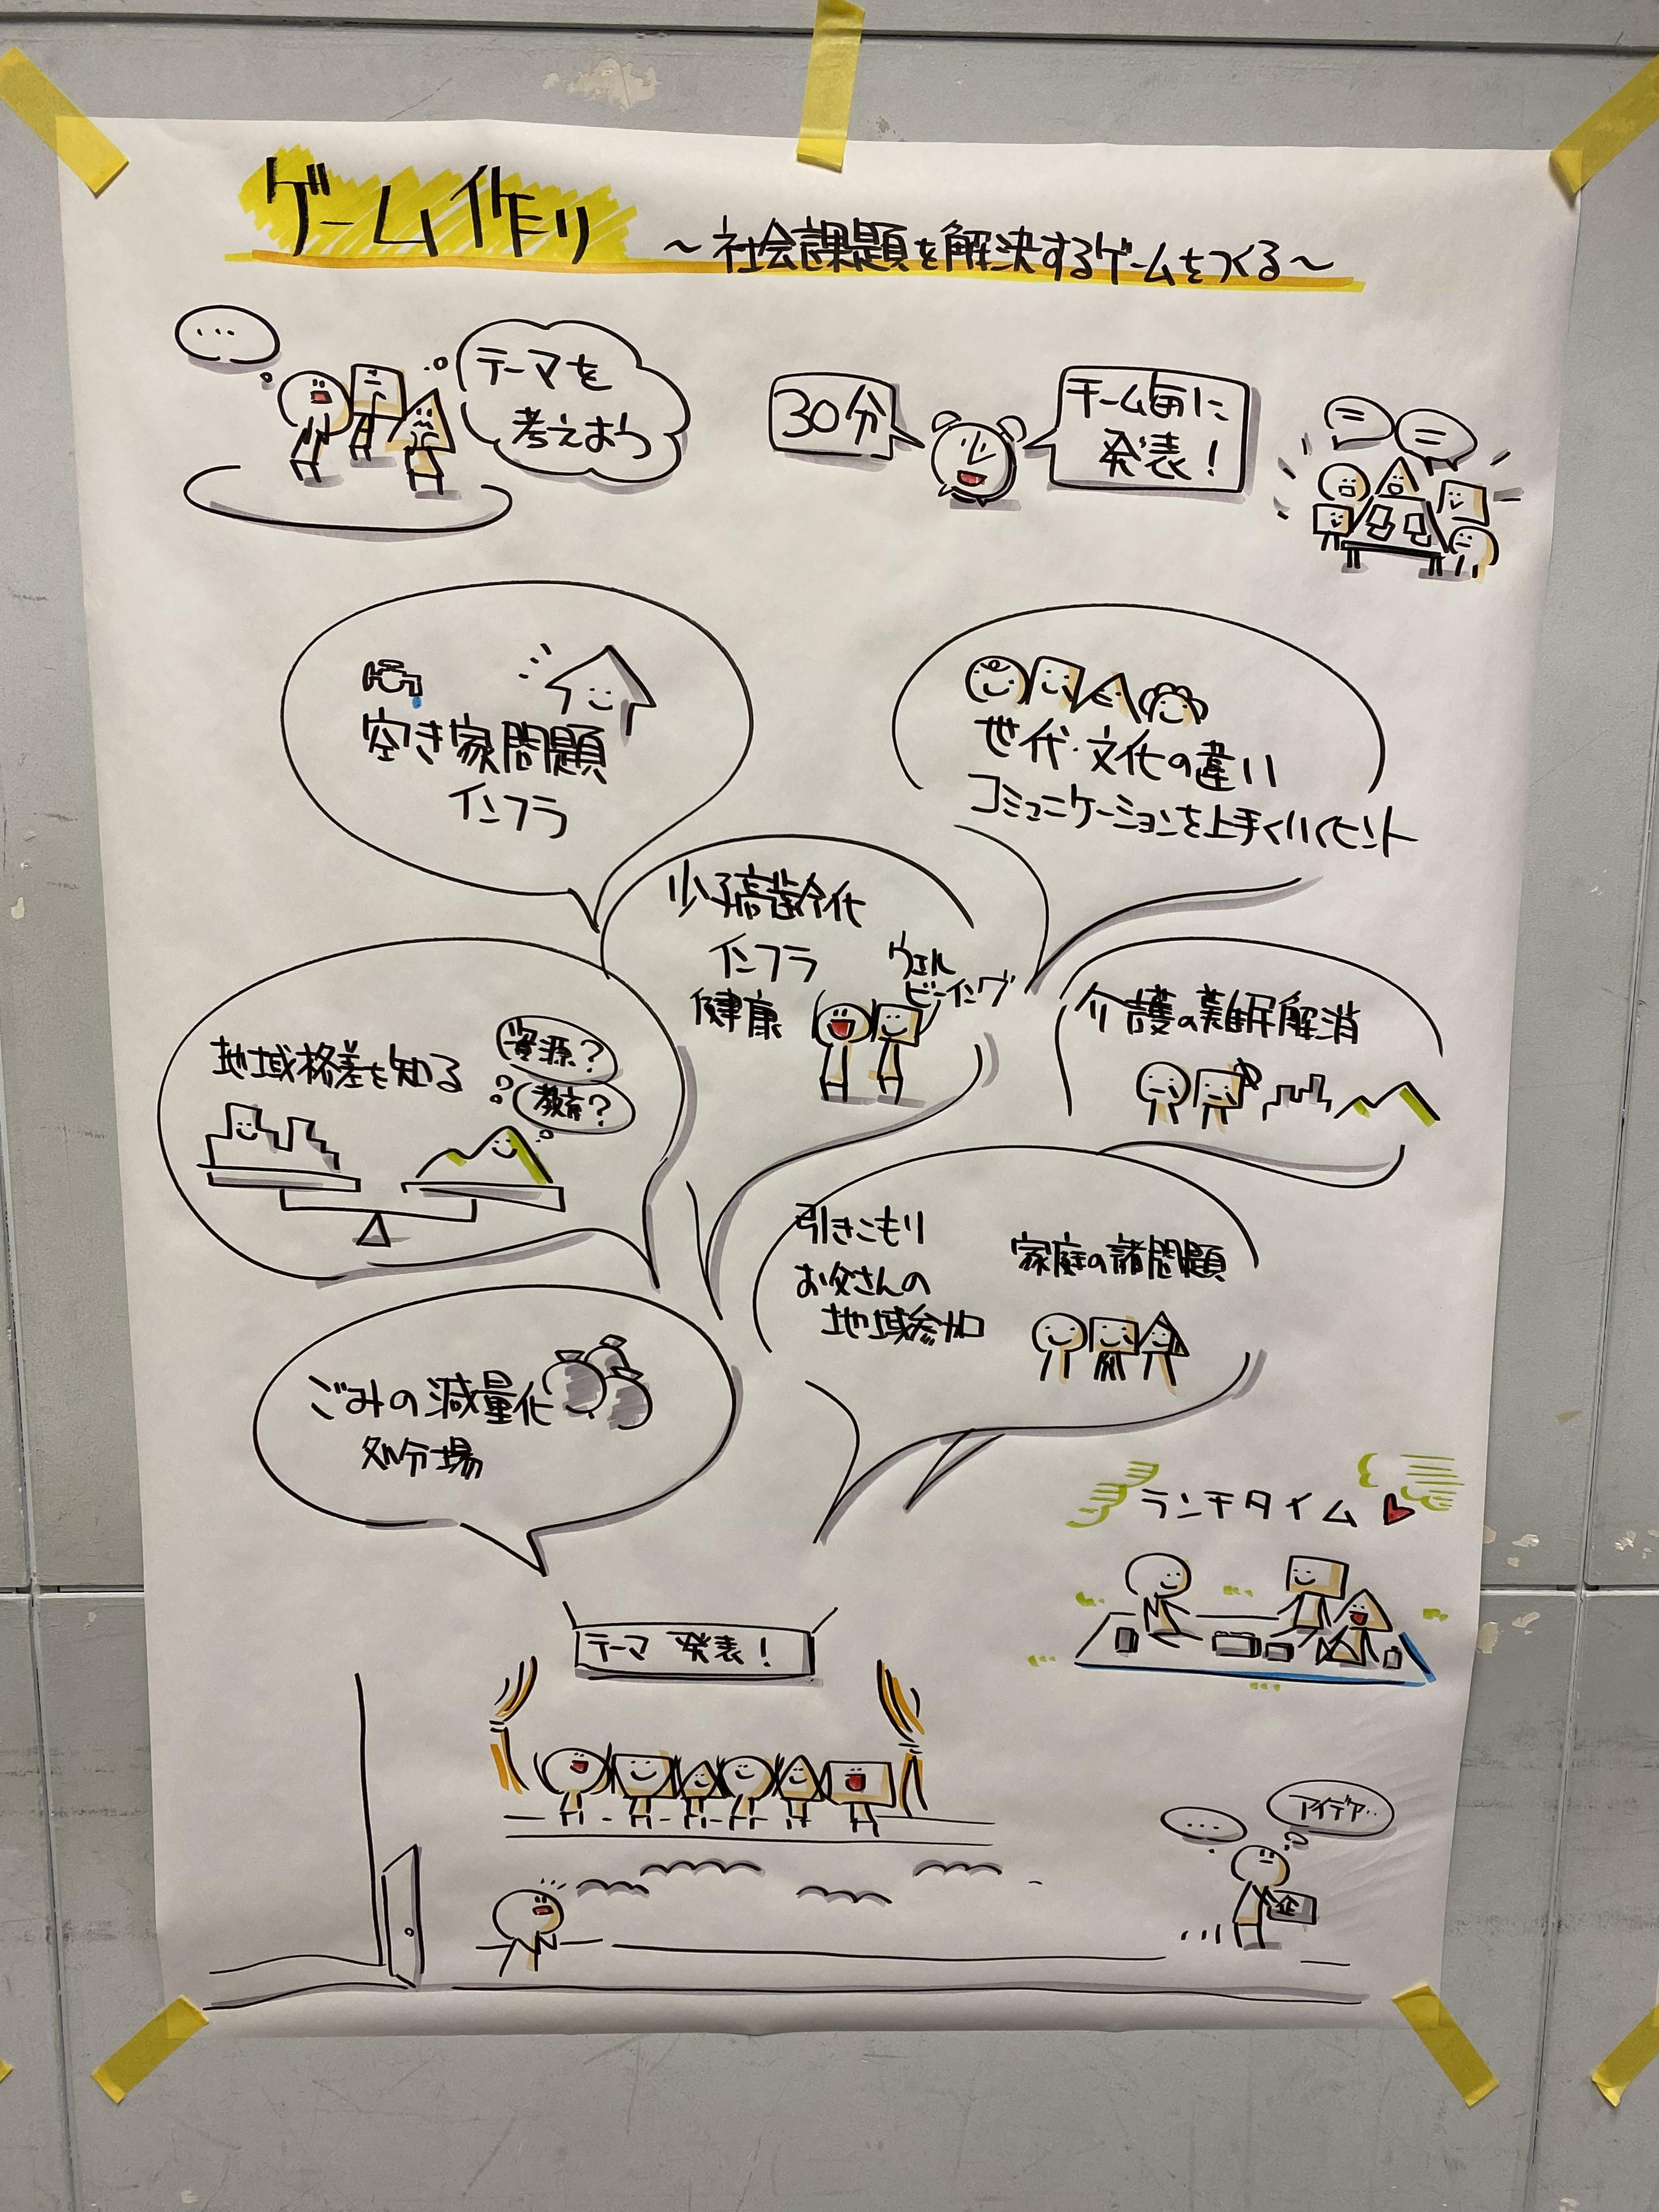 ゲーム作り
〜社会課題を解決するゲームをつくる〜
...
テーマを
考えよう
30分
チーム毎に
発表!
空き家問題
インフラ
世代・文化の違い
コミュニケーションを上手くいくヒント
少子高齢化
インフラ
健康
ウェル
ビーイング
地域格差を知る
資源?
教育?
介護の難民解消
引きこもり
お父さんの
地域参加
家庭の諸問題
ごみの減量化
処分場
ランチタイム
テーマ 発表!
...
アイデア..
企